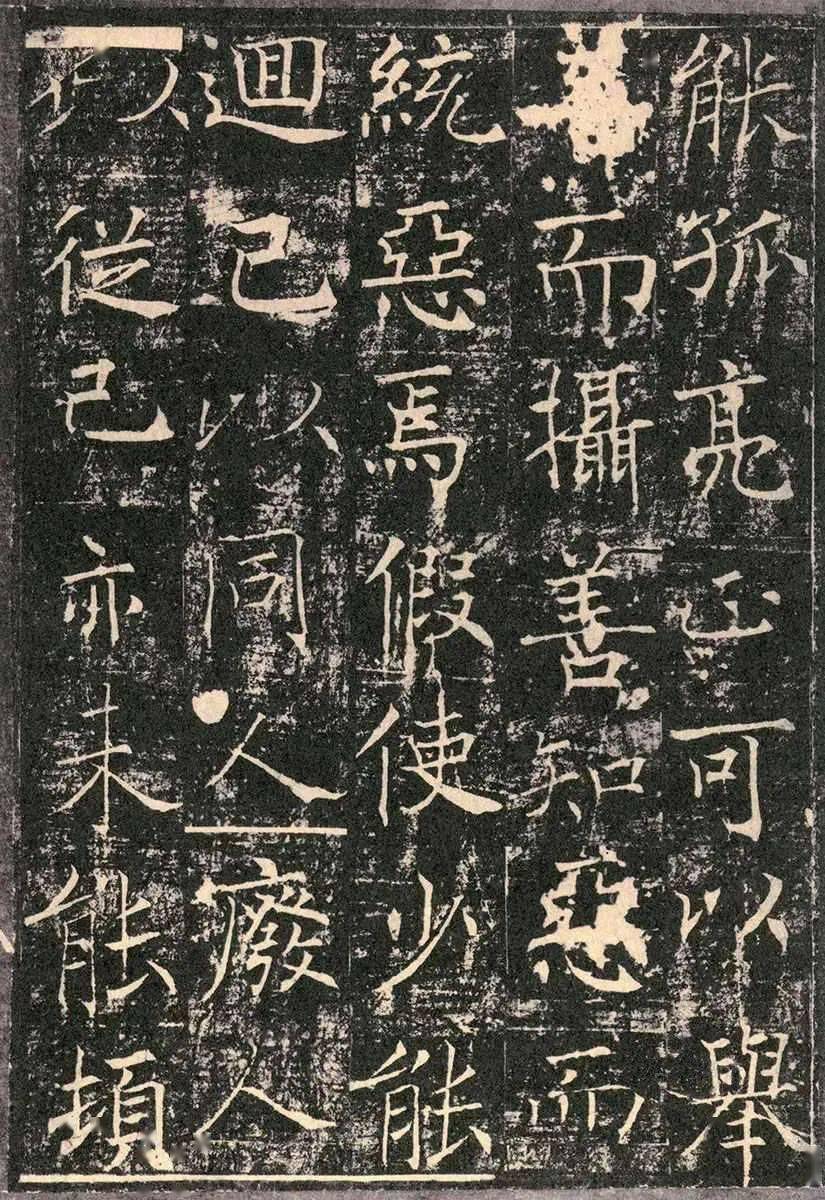 能孤亮正可以舉
而攝善知惡而
統惡焉假使少能
迴己以同人癈人
以從己亦未能頓